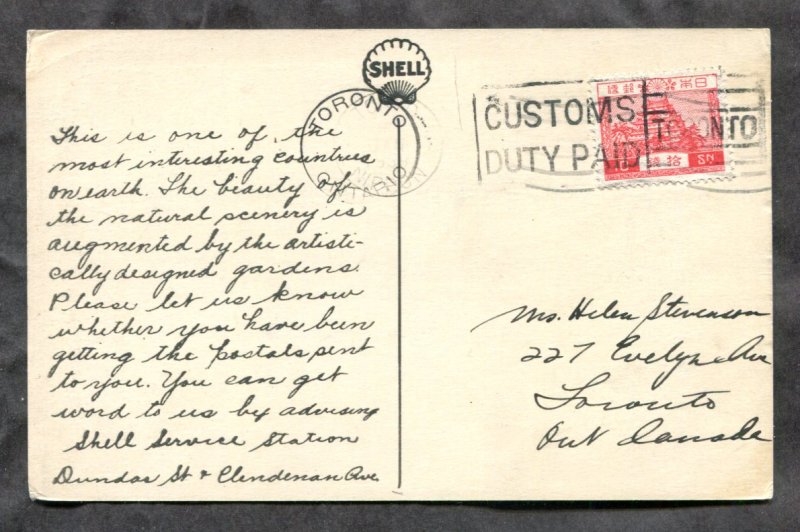 SHELL
TORONTO
ONTARIO
CUSTOMS
DUTY PAID
TORONTO
便郵國帝本日
10 錢拾 SN
This is one of the
most interesting countries
on earth. The beauty of
the natural scenery is
augmented by the artisti-
cally designed gardens.
Please let us know
whether you have been
getting the postals sent
to you. You can get
word to us by advising
Shell Service Station
Dundas St & Clendenan Ave.
Mrs. Helen Stevenson
227 Evelyn Ave
Toronto
Ont Canada